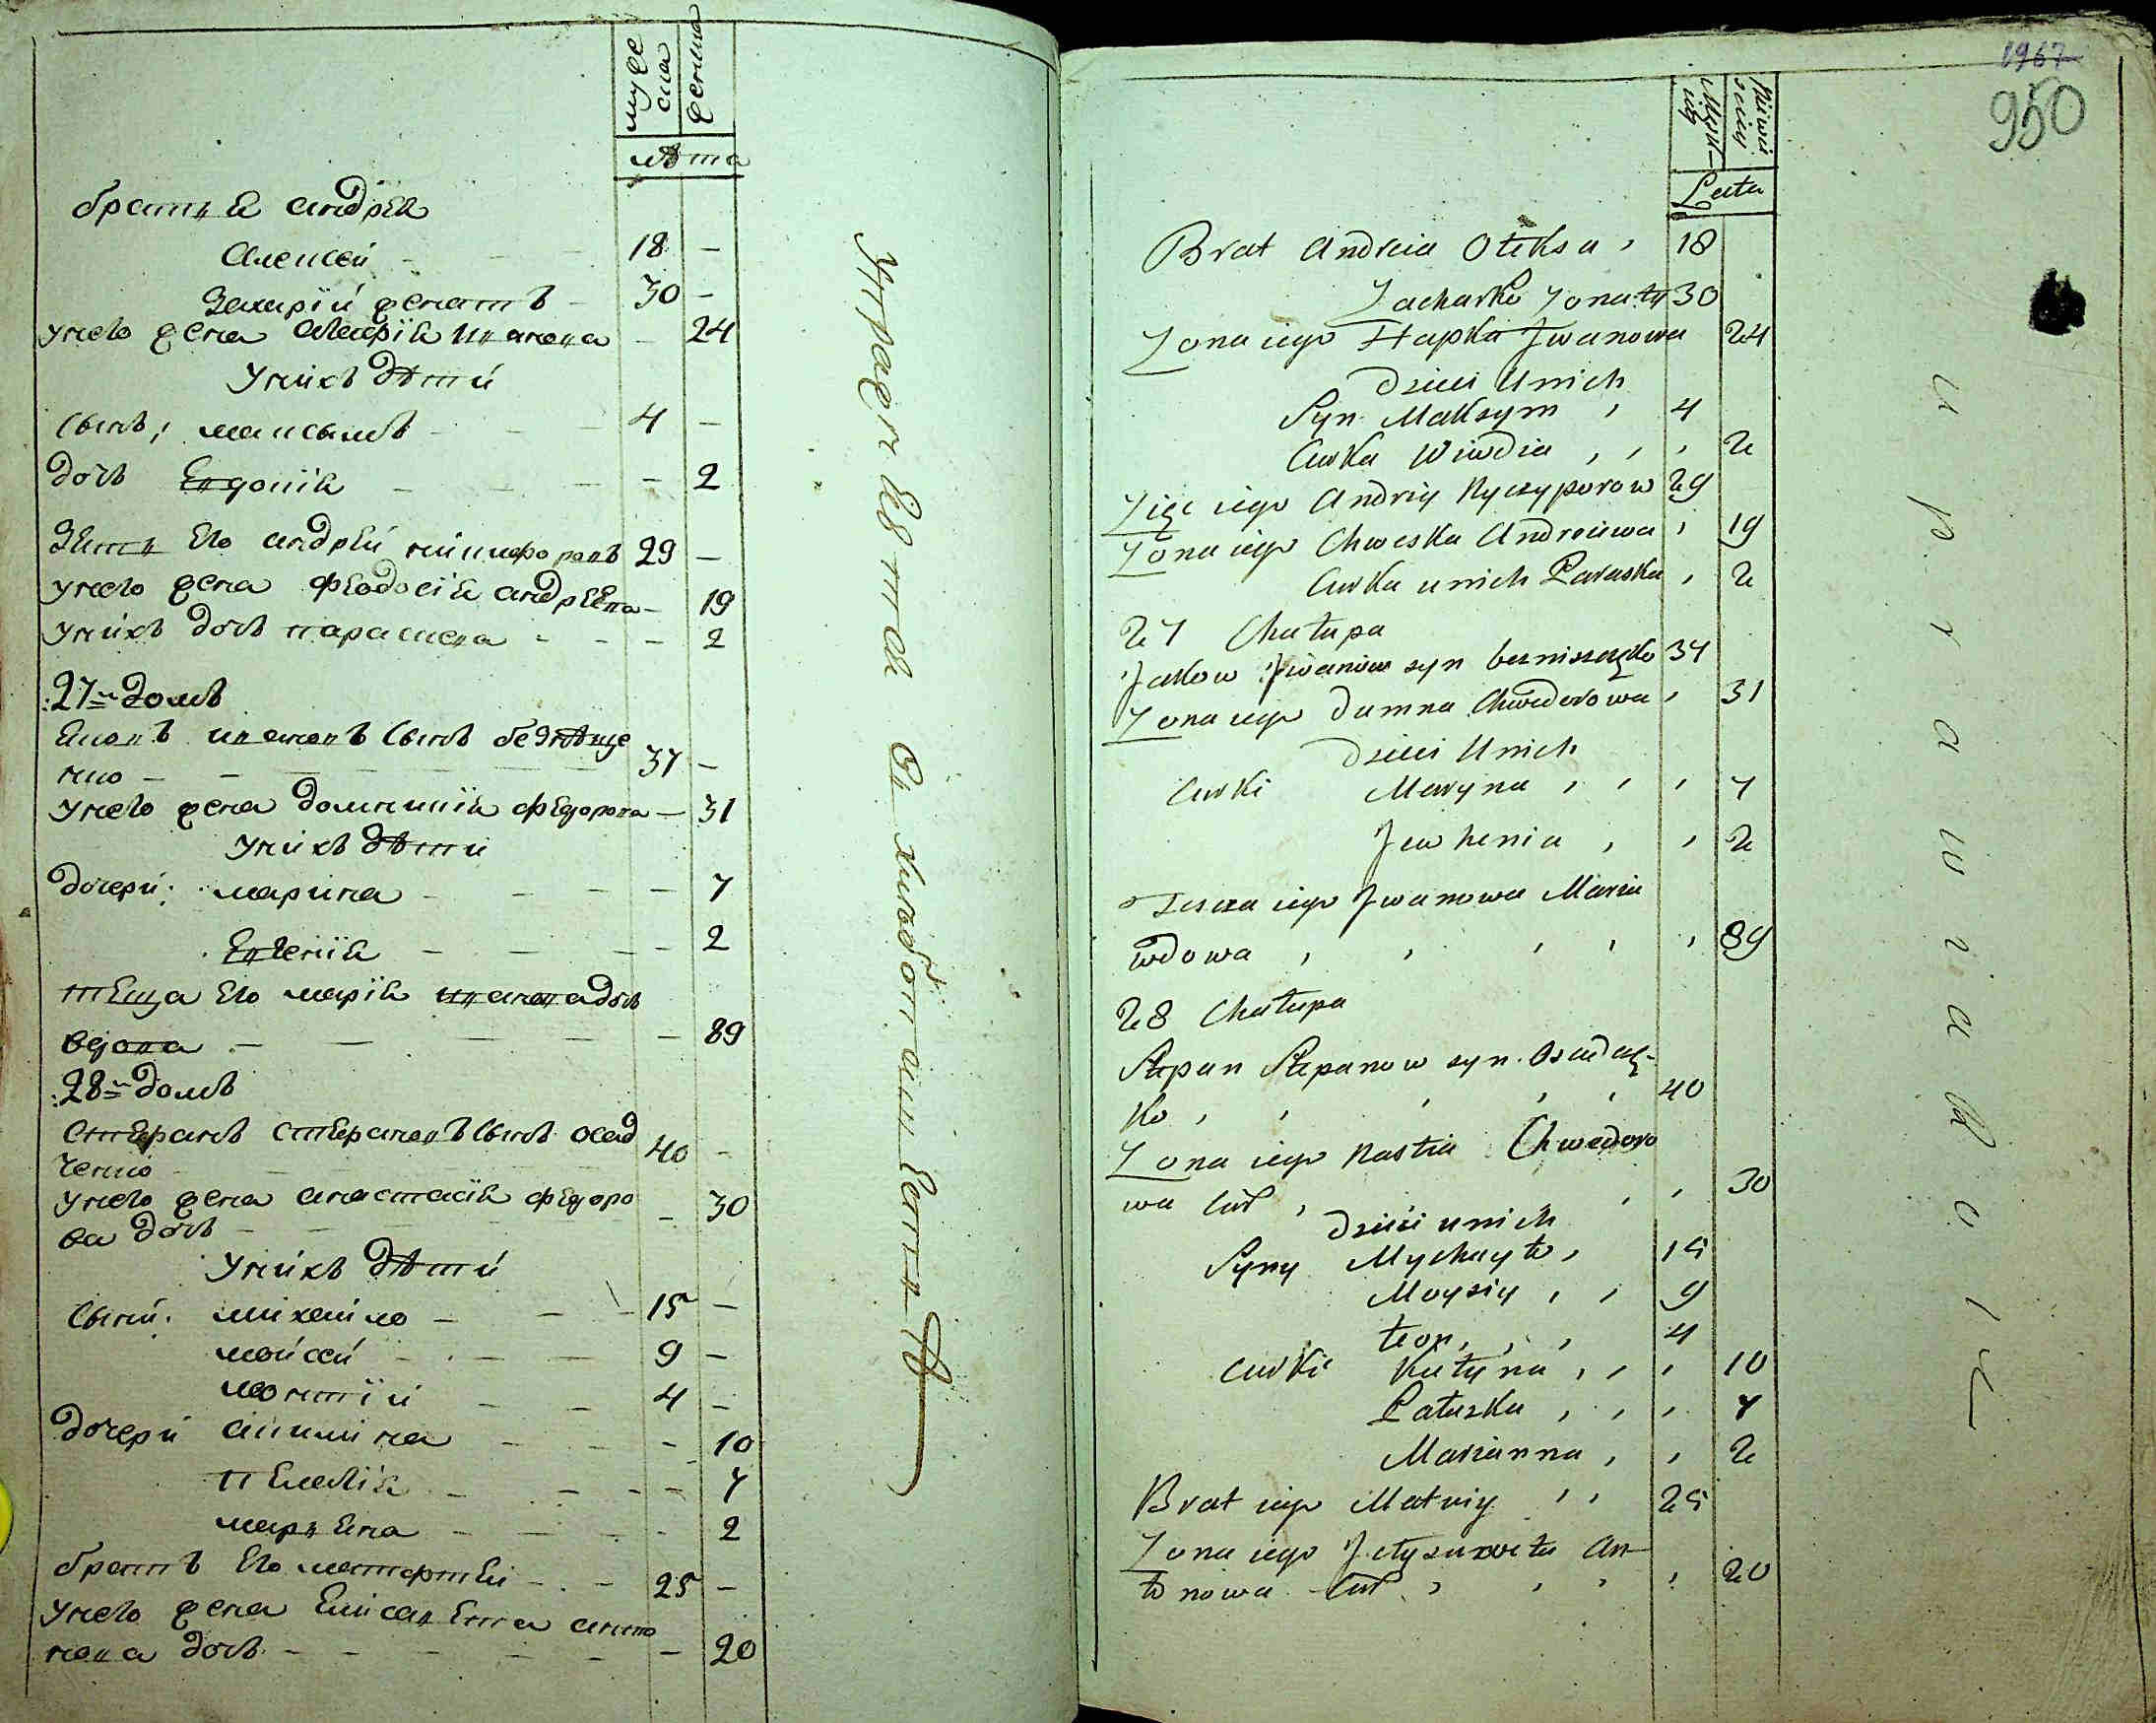 мужеска
женска
лѣта
братья андрея
Алексей - - - 18 -
Захарїй женатъ - 30 -
Унего жена Марїя иванова - 24
Унихъ дѣти
сынъ; максымъ - - - 4 -
дочь Евдокїя - - - - 2
Зять его андрей никифоровъ 29 -
унего жена феодосїя андреева - 19
унихъ дочь параскева - - - 2
:27й домъ
Яковъ ивановъ сынъ безнѣще
нко - - - 37 -
унего жена домникїя федорова - 31
унихъ дѣти
дочери: марина - - - - 7
Евгенїя - - - - 2
теща его марїя иванова дочь
вдова - - - - - 89
:28й домъ
Степанъ степановъ сынъ осад
ченко - - - 40 -
унего жена анастасїя федоро
ва дочь - - - - 30
Унихъ дѣти
сыни: михайло - - - 15 -
мойсей - - - 9 -
леонтїй - - 4 -
дочери акилина - - - 10
пелагїя - - - - 7
марьяна - - - - 2
братъ его матфей - - 25 -
унего жена Елисавета анто
нова дочь - - - - - 20
Męsk-
iey
Latta
1967
950
Brat Andreia Oteksa , 18
Zacharko Zonaty 30
Zona iego Hapka Jwanowa 24
Dzieci Unich
Syn Maksym , 4
Curka Wiwdia , , , 2
Zięc iego Andriy Nyczyporow 29
Zona iego Chweska Andreiewa , 19
Curka unich Paraska , 2
27 Chatupa
Jakow Jwanow syn bezniszczęko 37
Zona iego Dumna Chwedorowa , 31
Dzieci Unich
Curki Maryna , , , 7
Jewhenia , , 2
Tescza iego Jwanowa Maria
wdowa , , , , , 89
28 Chatupa
Stepan Stepanow syn Osadcz-
ko , , , , , 40
Zona iego Nastia Chwedoro
wa cur , , , 30
Dzieci unich
Syny Mychayto , 15
Moysiy , , 9
Leon , , , 4
Curki Kutyna , , , 10
Patazka , , , 7
Marianna , , 2
Brat iego Matwiy , , 25
Zona iego Jetyzaweta An-
tonowa cur , , , , 20